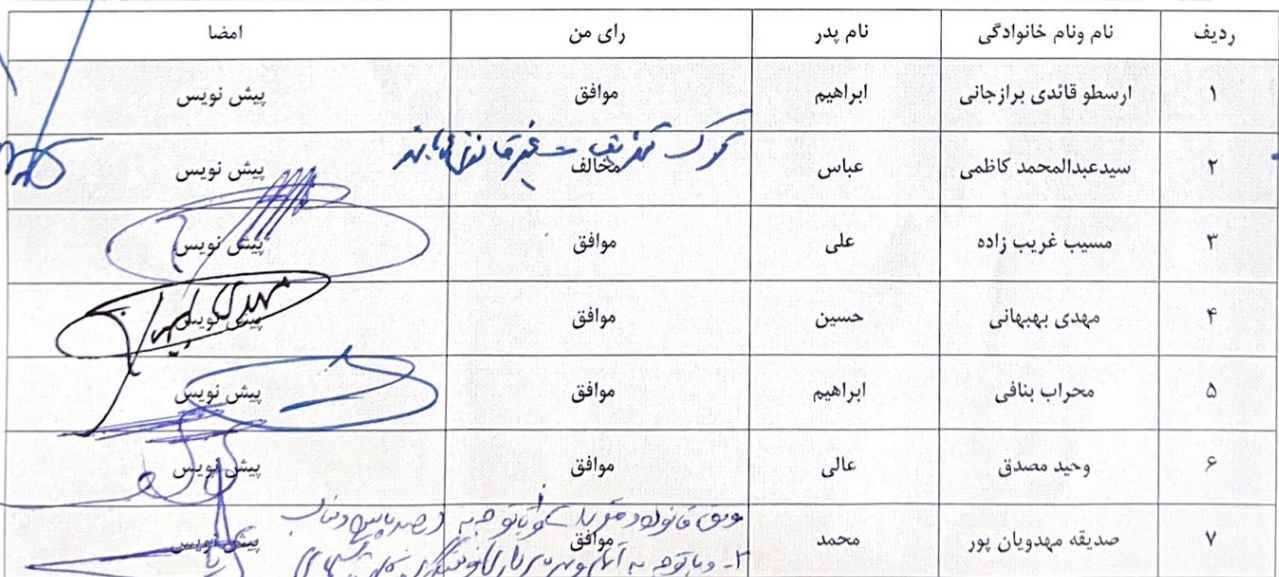 ردیف نام ونام خانوادگی نام پدر رای من امضا
۱ ارسطو قائدی برازجانی ابراهیم موافق پیش نویس
۲ سیدعبدالمحمد کاظمی عباس مخالف پیش نویس
۳ مسیب غریب زاده علی موافق پیش نویس
۴ مهدی بهبهانی حسین موافق پیش نویس
مهدی
۵ محراب بنافی ابراهیم موافق پیش نویس
۶ وحید مصدق عالی موافق پیش نویس
۷ صدیقه مهدویان پور محمد موافق پیش نویس
۲- وباتوجه به